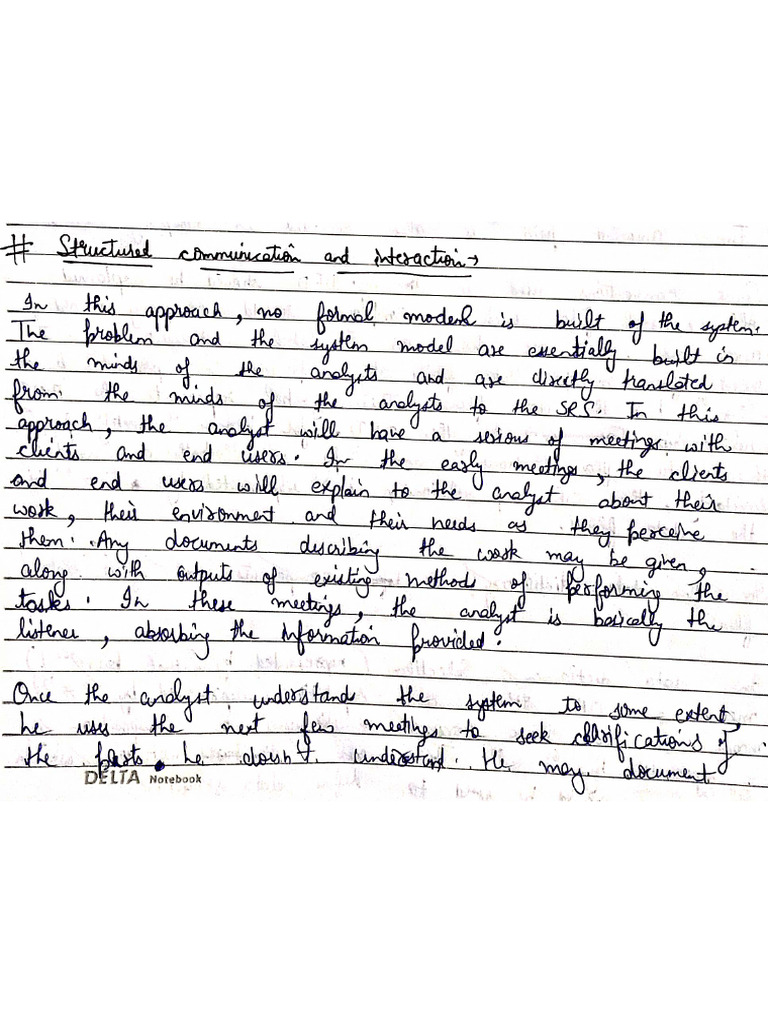 # Structured communication and interaction→
In this approach, no formal model is built of the system.
The problem and the system model are essentially built in
the minds of the analysts and are directly translated
from the minds of the analysts to the SRS. In this
approach, the analyst will have a serious of meetings with
clients and end users. In the early meetings, the clients
and end users will explain to the analyst about their
work, their environment and their needs as they perceive
them. Any documents describing the work may be given,
along with outputs of existing methods of performing the
tasks. In these meetings, the analyst is basically the
listener, absorbing the information provided.
Once the analyst understand the system to some extent,
he uses the next few meetings to seek clarifications of
the parts he doesn't understand. He may document
DELTA Notebook